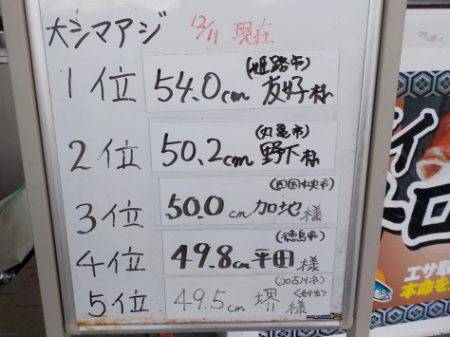 大シマアジ 12/11 現在
(姫路市)
1位 54.0cm 友好様
(丸亀市)
2位 50.2cm 野下様
(四国中央市)
3位 50.0cm 加地様
(徳島市)
4位 49.8cm 平田様
(加古川市)
5位 49.5cm 堺様
イ
トロ
エサ取
本命を